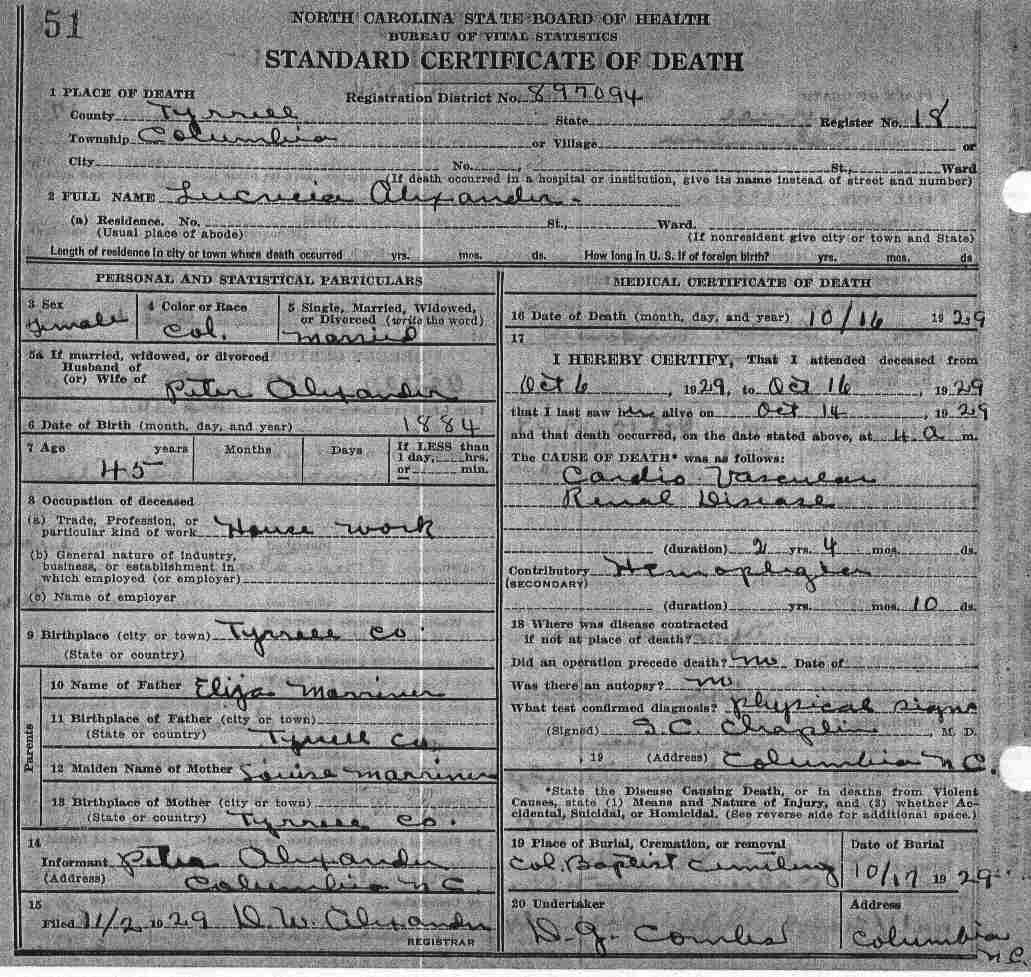 51
NORTH CAROLINA STATE BOARD OF HEALTH
BUREAU OF VITAL STATISTICS
STANDARD CERTIFICATE OF DEATH
1 PLACE OF DEATH
Registration District No. 897094
County Tyrrell State Register No. 18
Township Columbia or Village or
City No. St., Ward
(If death occurred in a hospital or institution, give its name instead of street and number)
2 FULL NAME Lucrecia Alexander
(a) Residence. No. St., Ward.
(Usual place of abode) (If nonresident give city or town and State)
Length of residence in city or town where death occurred yrs. mos. ds. How long in U. S. if of foreign birth? yrs. mos. ds
PERSONAL AND STATISTICAL PARTICULARS
3 Sex
female
4 Color or Race
Col.
5 Single, Married, Widowed,
or Divorced (write the word)
married
5a If married, widowed, or divorced
Husband of
(or) Wife of Peter Alexander
6 Date of Birth (month, day, and year) 1884
7 Age years Months Days If LESS than
1 day, hrs.
45
or min.
8 Occupation of deceased
(a) Trade, Profession, or
particular kind of work House work
(b) General nature of industry,
business, or establishment in
which employed (or employer)
(c) Name of employer
9 Birthplace (city or town) Tyrrell Co.
(State or country)
Parents
10 Name of Father Elija Marriner
11 Birthplace of Father (city or town)
(State or country) Tyrrell Co.
12 Maiden Name of Mother Louise Marriner
13 Birthplace of Mother (city or town)
(State or country) Tyrrell Co.
14
Informant Peter Alexander
(Address) Columbia N.C.
15
Filed 11/2 1929 D. W. Alexander
REGISTRAR
MEDICAL CERTIFICATE OF DEATH
16 Date of Death (month, day, and year) 10/16 1929
17
I HEREBY CERTIFY, That I attended deceased from
Oct 6, 1929, to Oct 16, 1929
that I last saw her alive on Oct 14, 1929
and that death occurred, on the date stated above, at 4 a m.
The CAUSE OF DEATH* was as follows:
Cardio Vascular
Renal Disease
(duration) 2 yrs. 4 mos. ds.
Contributory Hemaplegia
(SECONDARY)
(duration) yrs. mos. 10 ds.
18 Where was disease contracted
if not at place of death?
Did an operation precede death? no Date of
Was there an autopsy? no
What test confirmed diagnosis? Physical signs
(Signed) Chaplin, M. D.
, 19 (Address) Columbia N.C.
*State the Disease Causing Death, or in deaths from Violent
Causes, state (1) Means and Nature of Injury, and (2) whether Ac-
cidental, Suicidal, or Homicidal. (See reverse side for additional space.)
19 Place of Burial, Cremation, or removal
Col. Baptist Cemetery
Date of Burial
10/17 1929
20 Undertaker
D. J. Combs
Address
Columbia
N.C.